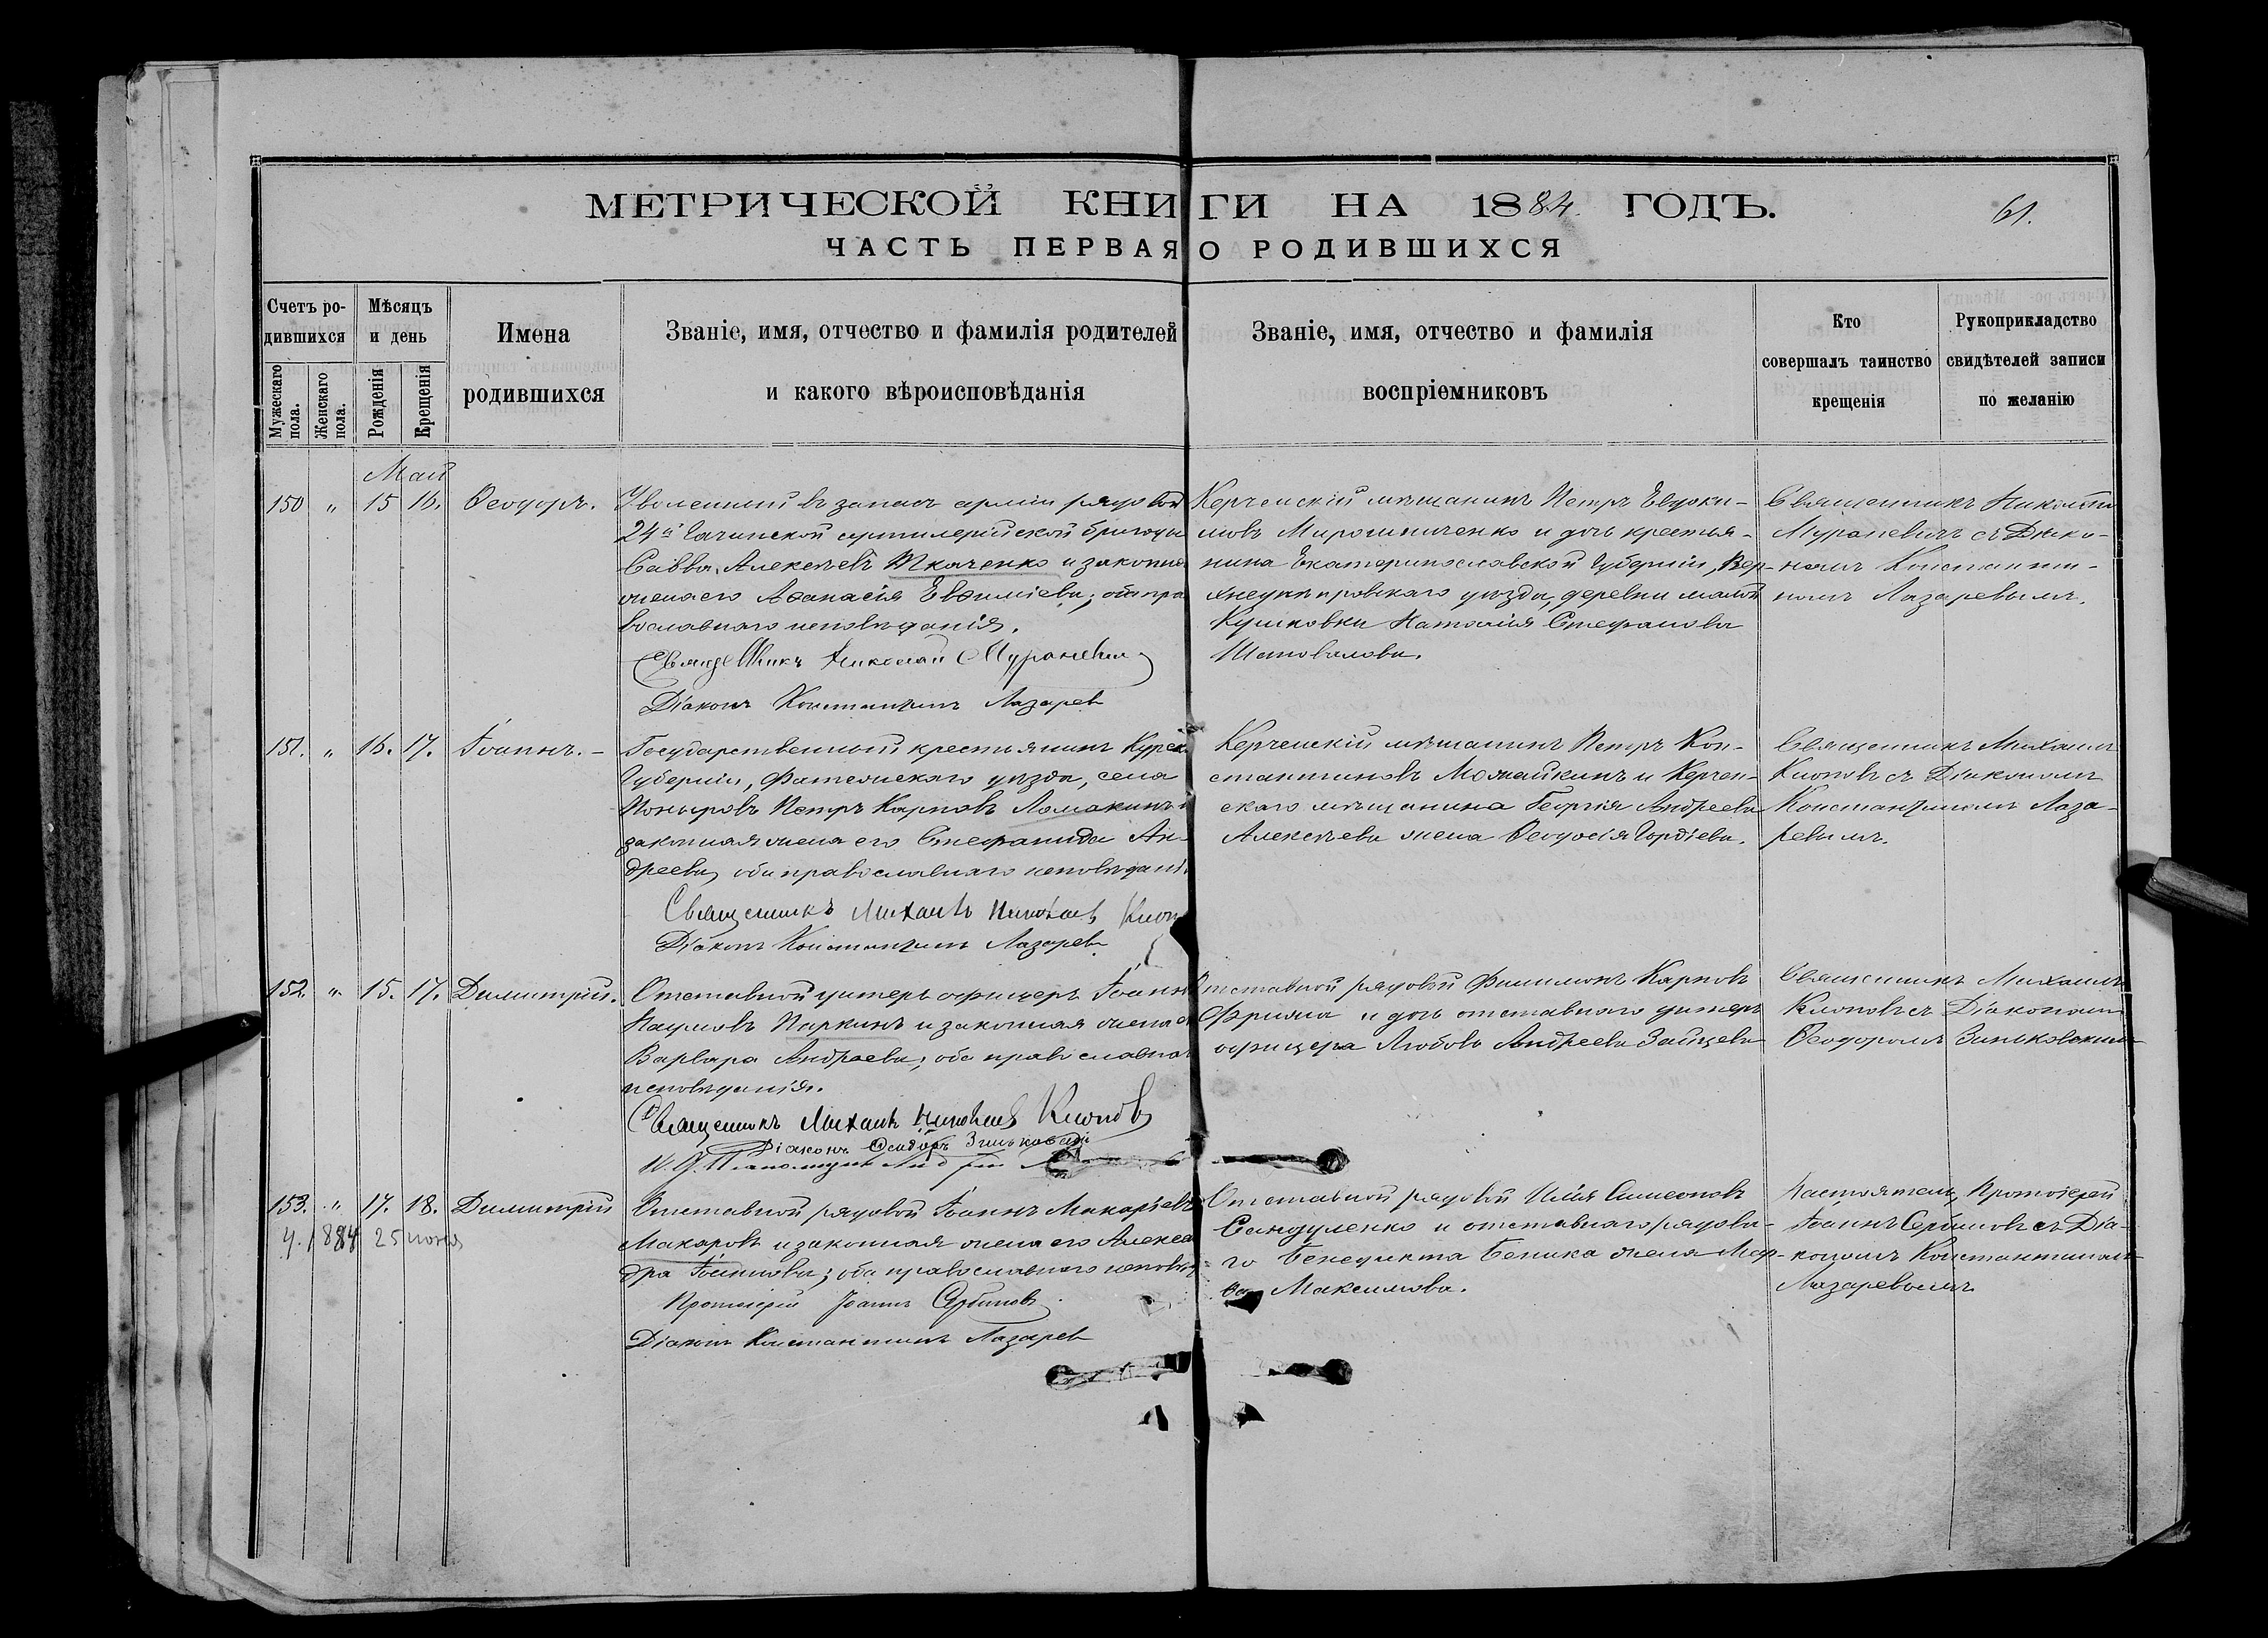 МЕТРИЧЕСКОЙ КНИГИ НА 1884 ГОДЪ.
61.
ЧАСТЬ ПЕРВАЯ О РОДИВШИХСЯ
Счетъ родившихся
Мужескаго пола.
Женскаго пола.
Мѣсяцъ и день
Рожденія
Крещенія
Имена
родившихся
Званіе, имя, отчество и фамилія родителей
и какого вѣроисповѣданія
Званіе, имя, отчество и фамилія
воспріемниковъ
Кто
совершалъ таинство
крещенія
Рукоприкладство
свидѣтелей записи
по желанію
Май
150 " 15 16. Ѳеодоръ.
Уволенный въ запасъ арміи рядовой
24й артилерійской бригады
Савва Алексѣевъ Ткаченко и законная
жена его Аѳанасія Евѳиміева; оба пра
вославнаго исповѣданія.
Священникъ Николай Мураневичъ
Діаконъ Константинъ Лазарев
Керченскій мѣщанинъ Петръ Евдоки-
мовъ Мирошниченко и дочь крестья-
нина Екатеринославской Губерніи, Вер-
хнеднепровскаго уѣзда, деревни малой
Наталія Стефанова
Шаповалова.
Священникъ Николай
Мураневичъ съ Діако-
номъ Константи-
номъ Лазаревымъ.
151. " 16. 17. Іоаннъ. –
Государственный крестьянинъ Курск
Губерніи, Фатежскаго уѣзда, села
Поныровъ Петръ Карповъ Ломакинъ и
законная жена его Стефанида Ан-
дреева, оба православнаго исповѣдані
Священникъ Михаилъ Николаевъ Клоп
Діаконъ Константинъ Лазарев.
Керченскій мѣщанинъ Петръ Кон-
стантиновъ Можайкинъ и Керчен-
скаго мѣщанина Георгія Андреева
Алексѣева жена Ѳеодосія Гордіева.
Священникъ Михаилъ
Клоповъ съ Діакономъ
Константиномъ Лаза-
ревымъ.
152. " 15. 17. Димитрій.
Отставной унтеръ офицеръ Іоаннъ
Наумовъ Паркинъ и законная жена е
Варвара Андреева; оба православна
исповѣданія.
Священникъ Михаилъ Николаевъ Клоповъ
Діаконъ Ѳеодоръ Зиньковскій
Отставной рядовой Филимонъ Карповъ
и дочь отставнаго унтеръ
офицера Любовь Андреева Зайцева
Священникъ Михаилъ
Клоповъ съ Діакономъ
Ѳеодоромъ Зиньковскимъ
153. " 17. 18. Димитрій
1884 25 июня
Отставной рядовой Іоаннъ Макаріевъ
Макаровъ и законная жена его Алекса
дра Іоаннова; оба православнаго исповѣд
Протоіерей Іоаннъ Сербиновъ
Діаконъ Константинъ Лазарев
Отставной рядовой Илія Симеоновъ
Сандуленко и отставнаго рядова-
го Бенедикта Беника жена Мар-
ѳа Максимова.
Настоятель Протоіерей
Іоаннъ Сербиновъ съ Діа-
кономъ Константиномъ
Лазаревымъ.